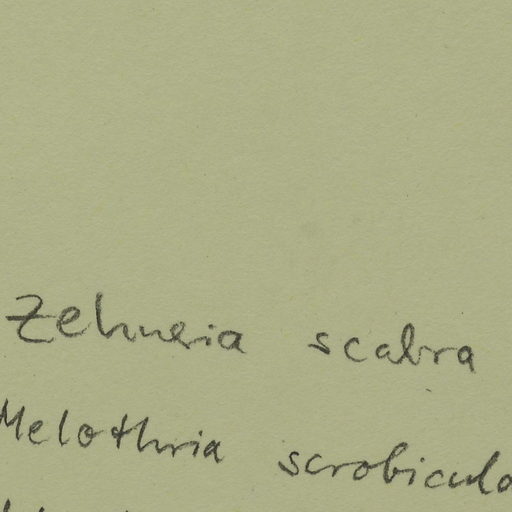 Zehneria scabra
Melothria scrobicula